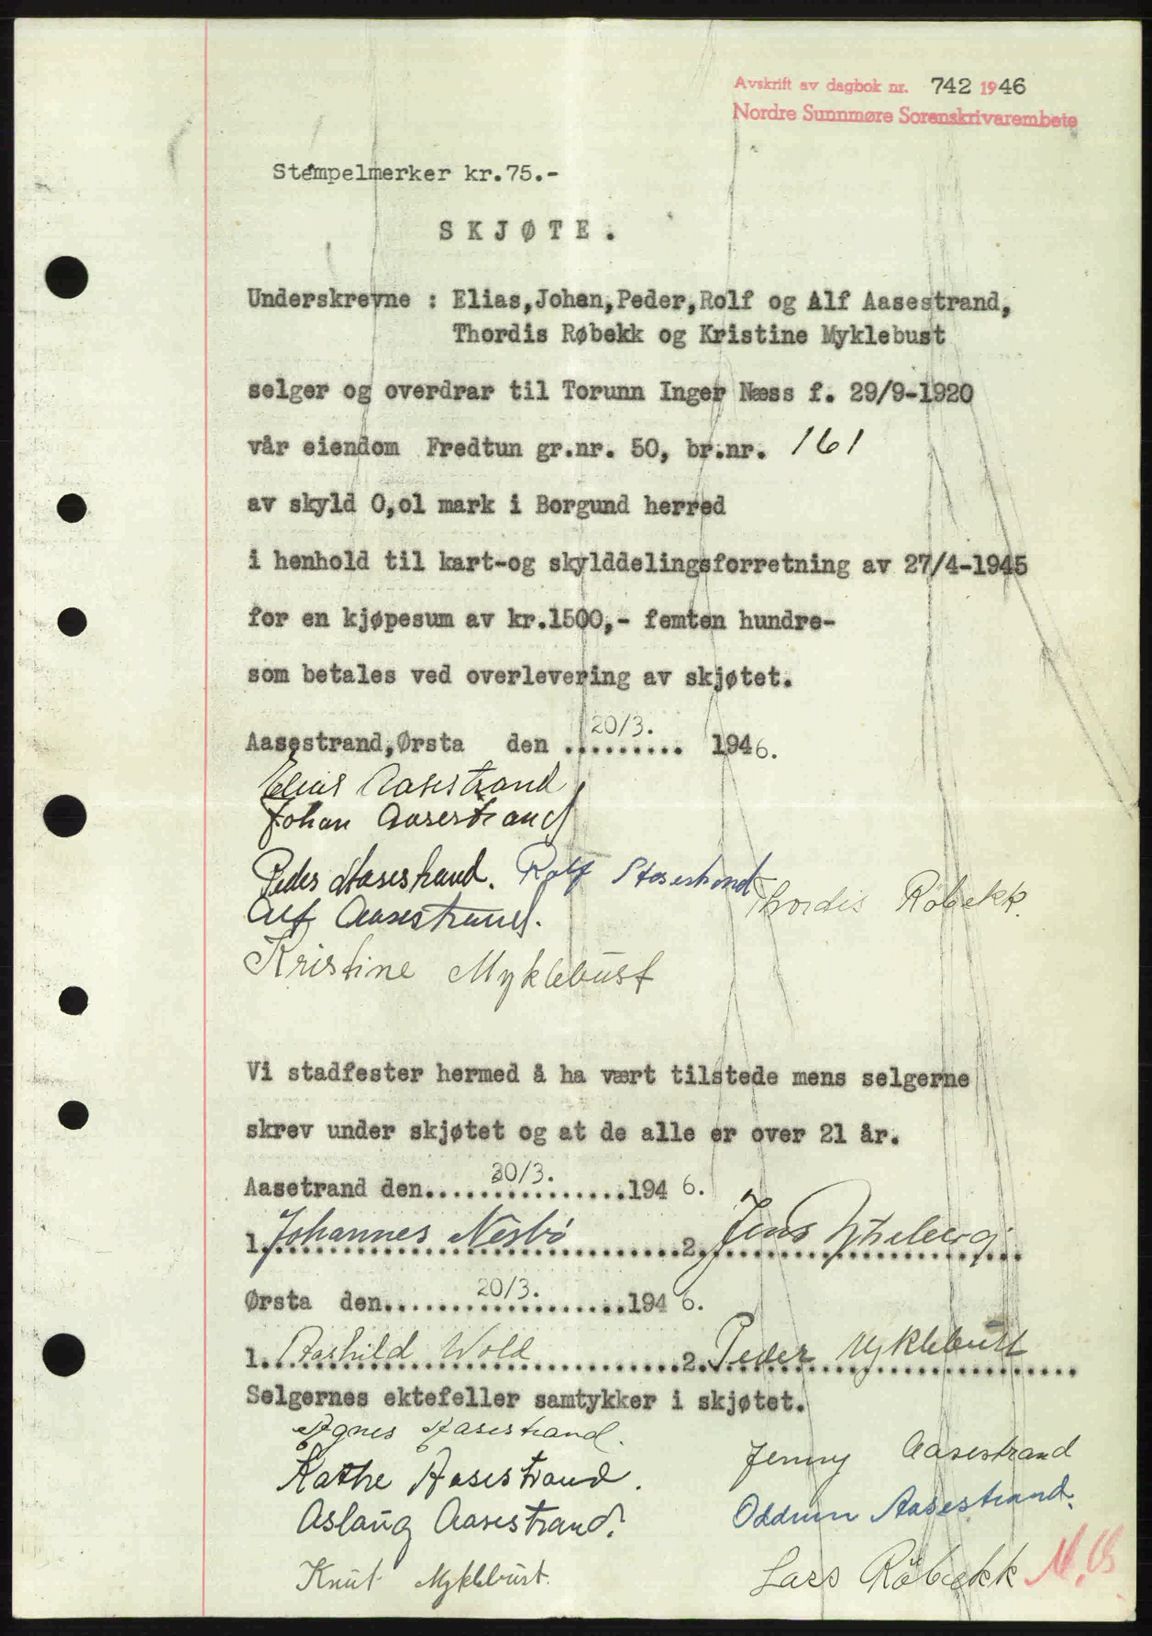 Avskrift av dagbok nr. 742 1946
Nordre Sunnmøre Sorenskrivarembete
Stempelmerker kr.75.-
SKJØTE.
Underskrevne : Elias,Johan,Peder,Rolf og Alf Aasestrand,
Thordis Røbekk og Kristine Myklebust
selger og overdrar til Torunn Inger Næss f. 29/9-1920
vår eiendom Fredtun gr.nr. 50, br.nr. 161
av skyld 0,ol mark i Borgund herred
i henhold til kart-og skylddelingsforretning av 27/4-1945
for en kjøpesum av kr.1500,- femten hundre-
som betales ved overlevering av skjøtet.
Aasestrand,Ørsta den ...20/3.... 1946.
Elias Aasestrand
Johan Aasestrand
Peder Aasestrand. Rolf Aasestrand Thordis Røbekk.
Alf Aasestrand.
Kristine Myklebust
Vi stadfester hermed å ha vært tilstede mens selgerne
skrev under skjøtet og at de alle er over 21 år.
Aasetrand den......20/3.......1946.
1. Johannes Nesbö 2. Jens
Ørsta den.......20/3.......1946.
1. Aashild Wold 2. Peder Myklebust
Selgernes ektefeller samtykker i skjøtet.
Agnes Aasestrand.
Jenny Aasestrand
Kathe Aasestrand.
Oddrun Aasestrand.
Aslaug Aasestrand.
Knut Myklebust.
Lars Röbekk